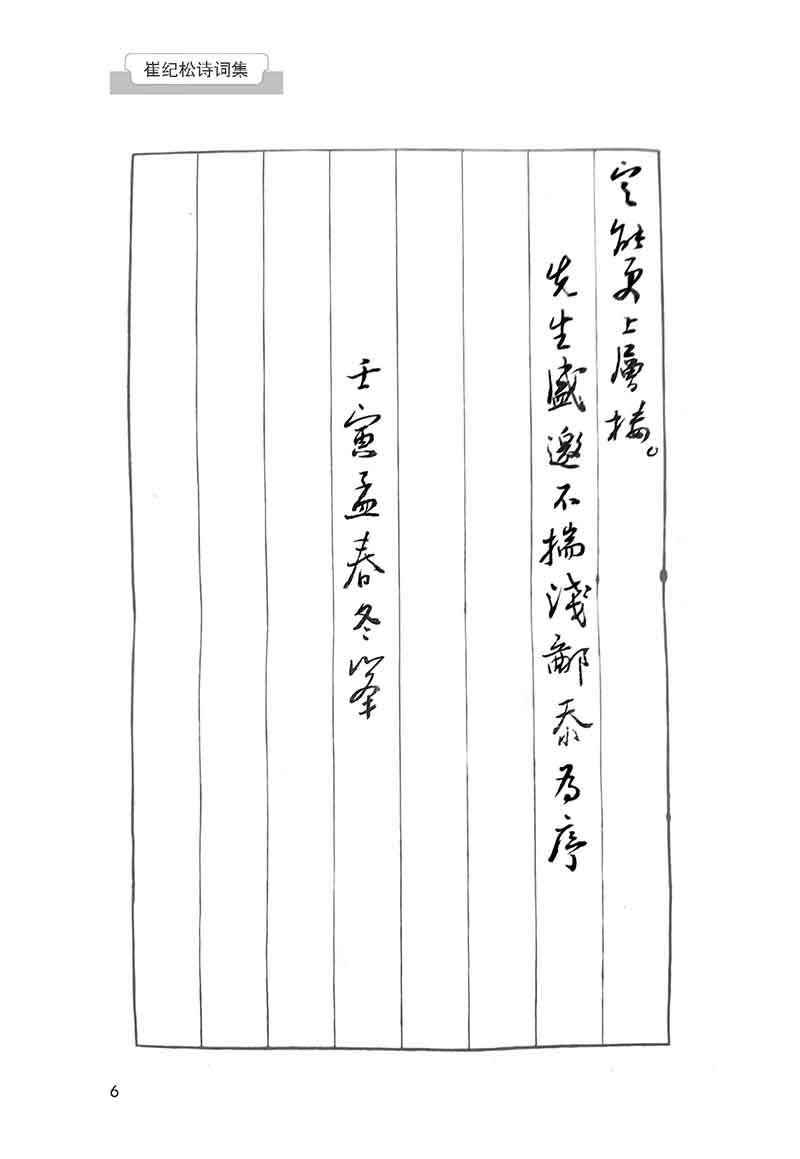 崔纪松诗词集
定能更上層楼。
先生盛邀不揣淺鄙忝為序
壬寅孟春冬峯
6